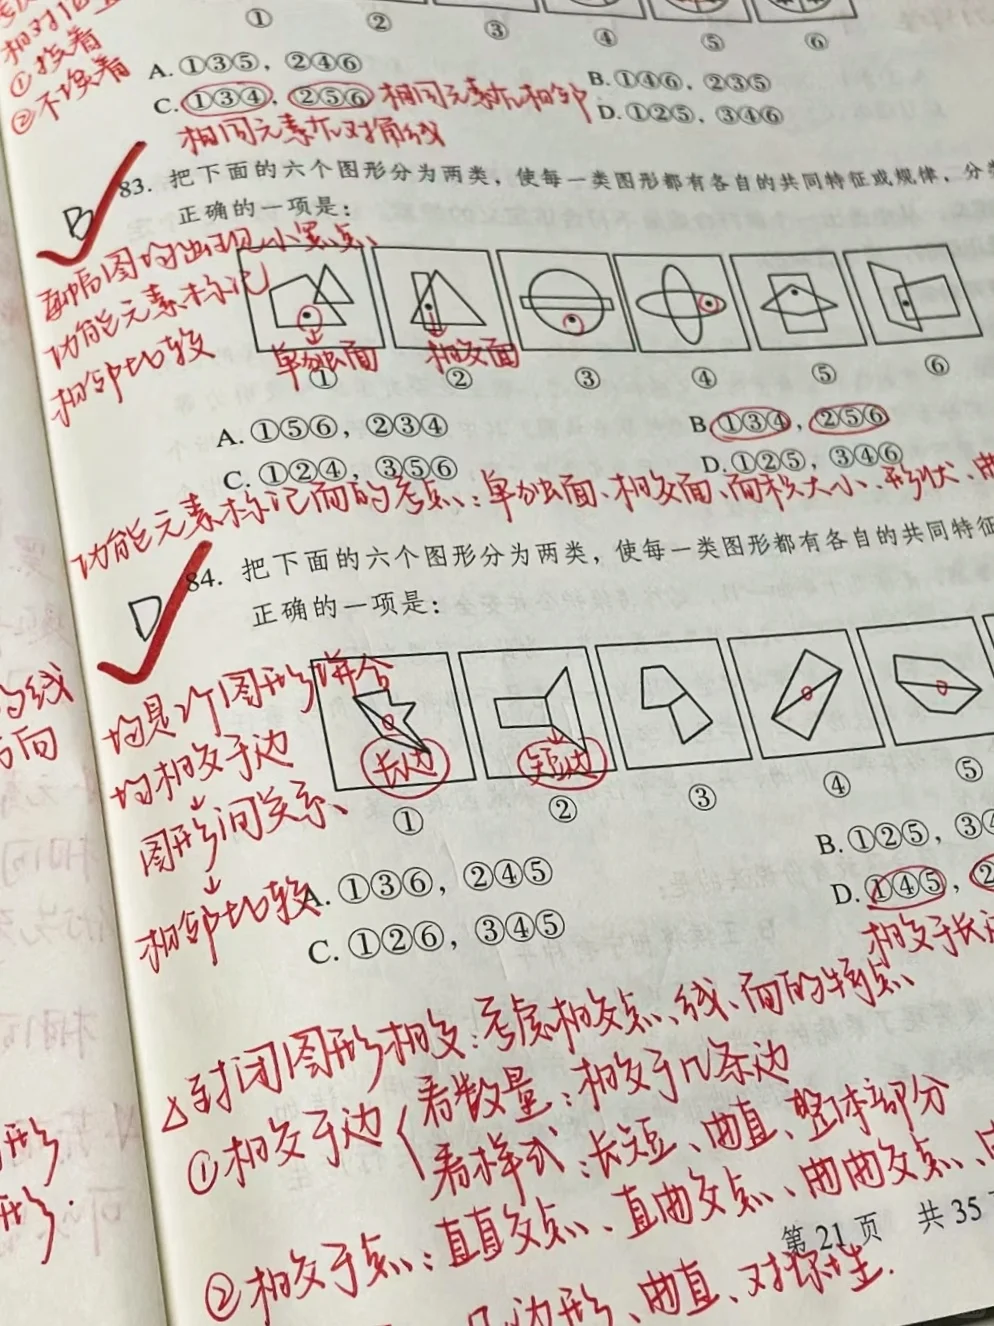 相对位置
①挨着
②不挨着
① ② ③ ④ ⑤ ⑥
A. ①③⑤，②④⑥
B. ①④⑥，②③⑤
C. ①③④，②⑤⑥ 相同元素不相邻
D. ①②⑤，③④⑥
相同元素不对角线
B
83. 把下面的六个图形分为两类，使每一类图形都有各自的共同特征或规律，分类
正确的一项是：
每幅图均出现小黑点、
功能元素标记
相邻比较
单独面
相交面
① ② ③ ④ ⑤ ⑥
A. ①⑤⑥，②③④
B. ①③④，②⑤⑥
C. ①②④，③⑤⑥
D. ①②⑤，③④⑥
功能元素标记面的考点：单独面、相交面、面积大小、形状、曲
D
84. 把下面的六个图形分为两类，使每一类图形都有各自的共同特征
正确的一项是：
均是2个图形拼合
均相交于边
图形间关系、
相邻比较
长边
短边
① ② ③ ④ ⑤
A. ①③⑥，②④⑤
B. ①②⑤，③④
C. ①②⑥，③④⑤
D. ①④⑤，②
相交于长边
△封闭图形相交：考虑相交点、线、面的特点、
①相交于边
看数量：相交于几条边
看样式：长短、曲直、整体部分
②相交于点：直直交点、直曲交点、曲曲交点、
第 21 页 共 35
边形、曲直、对称性.
的线
方向
形
形